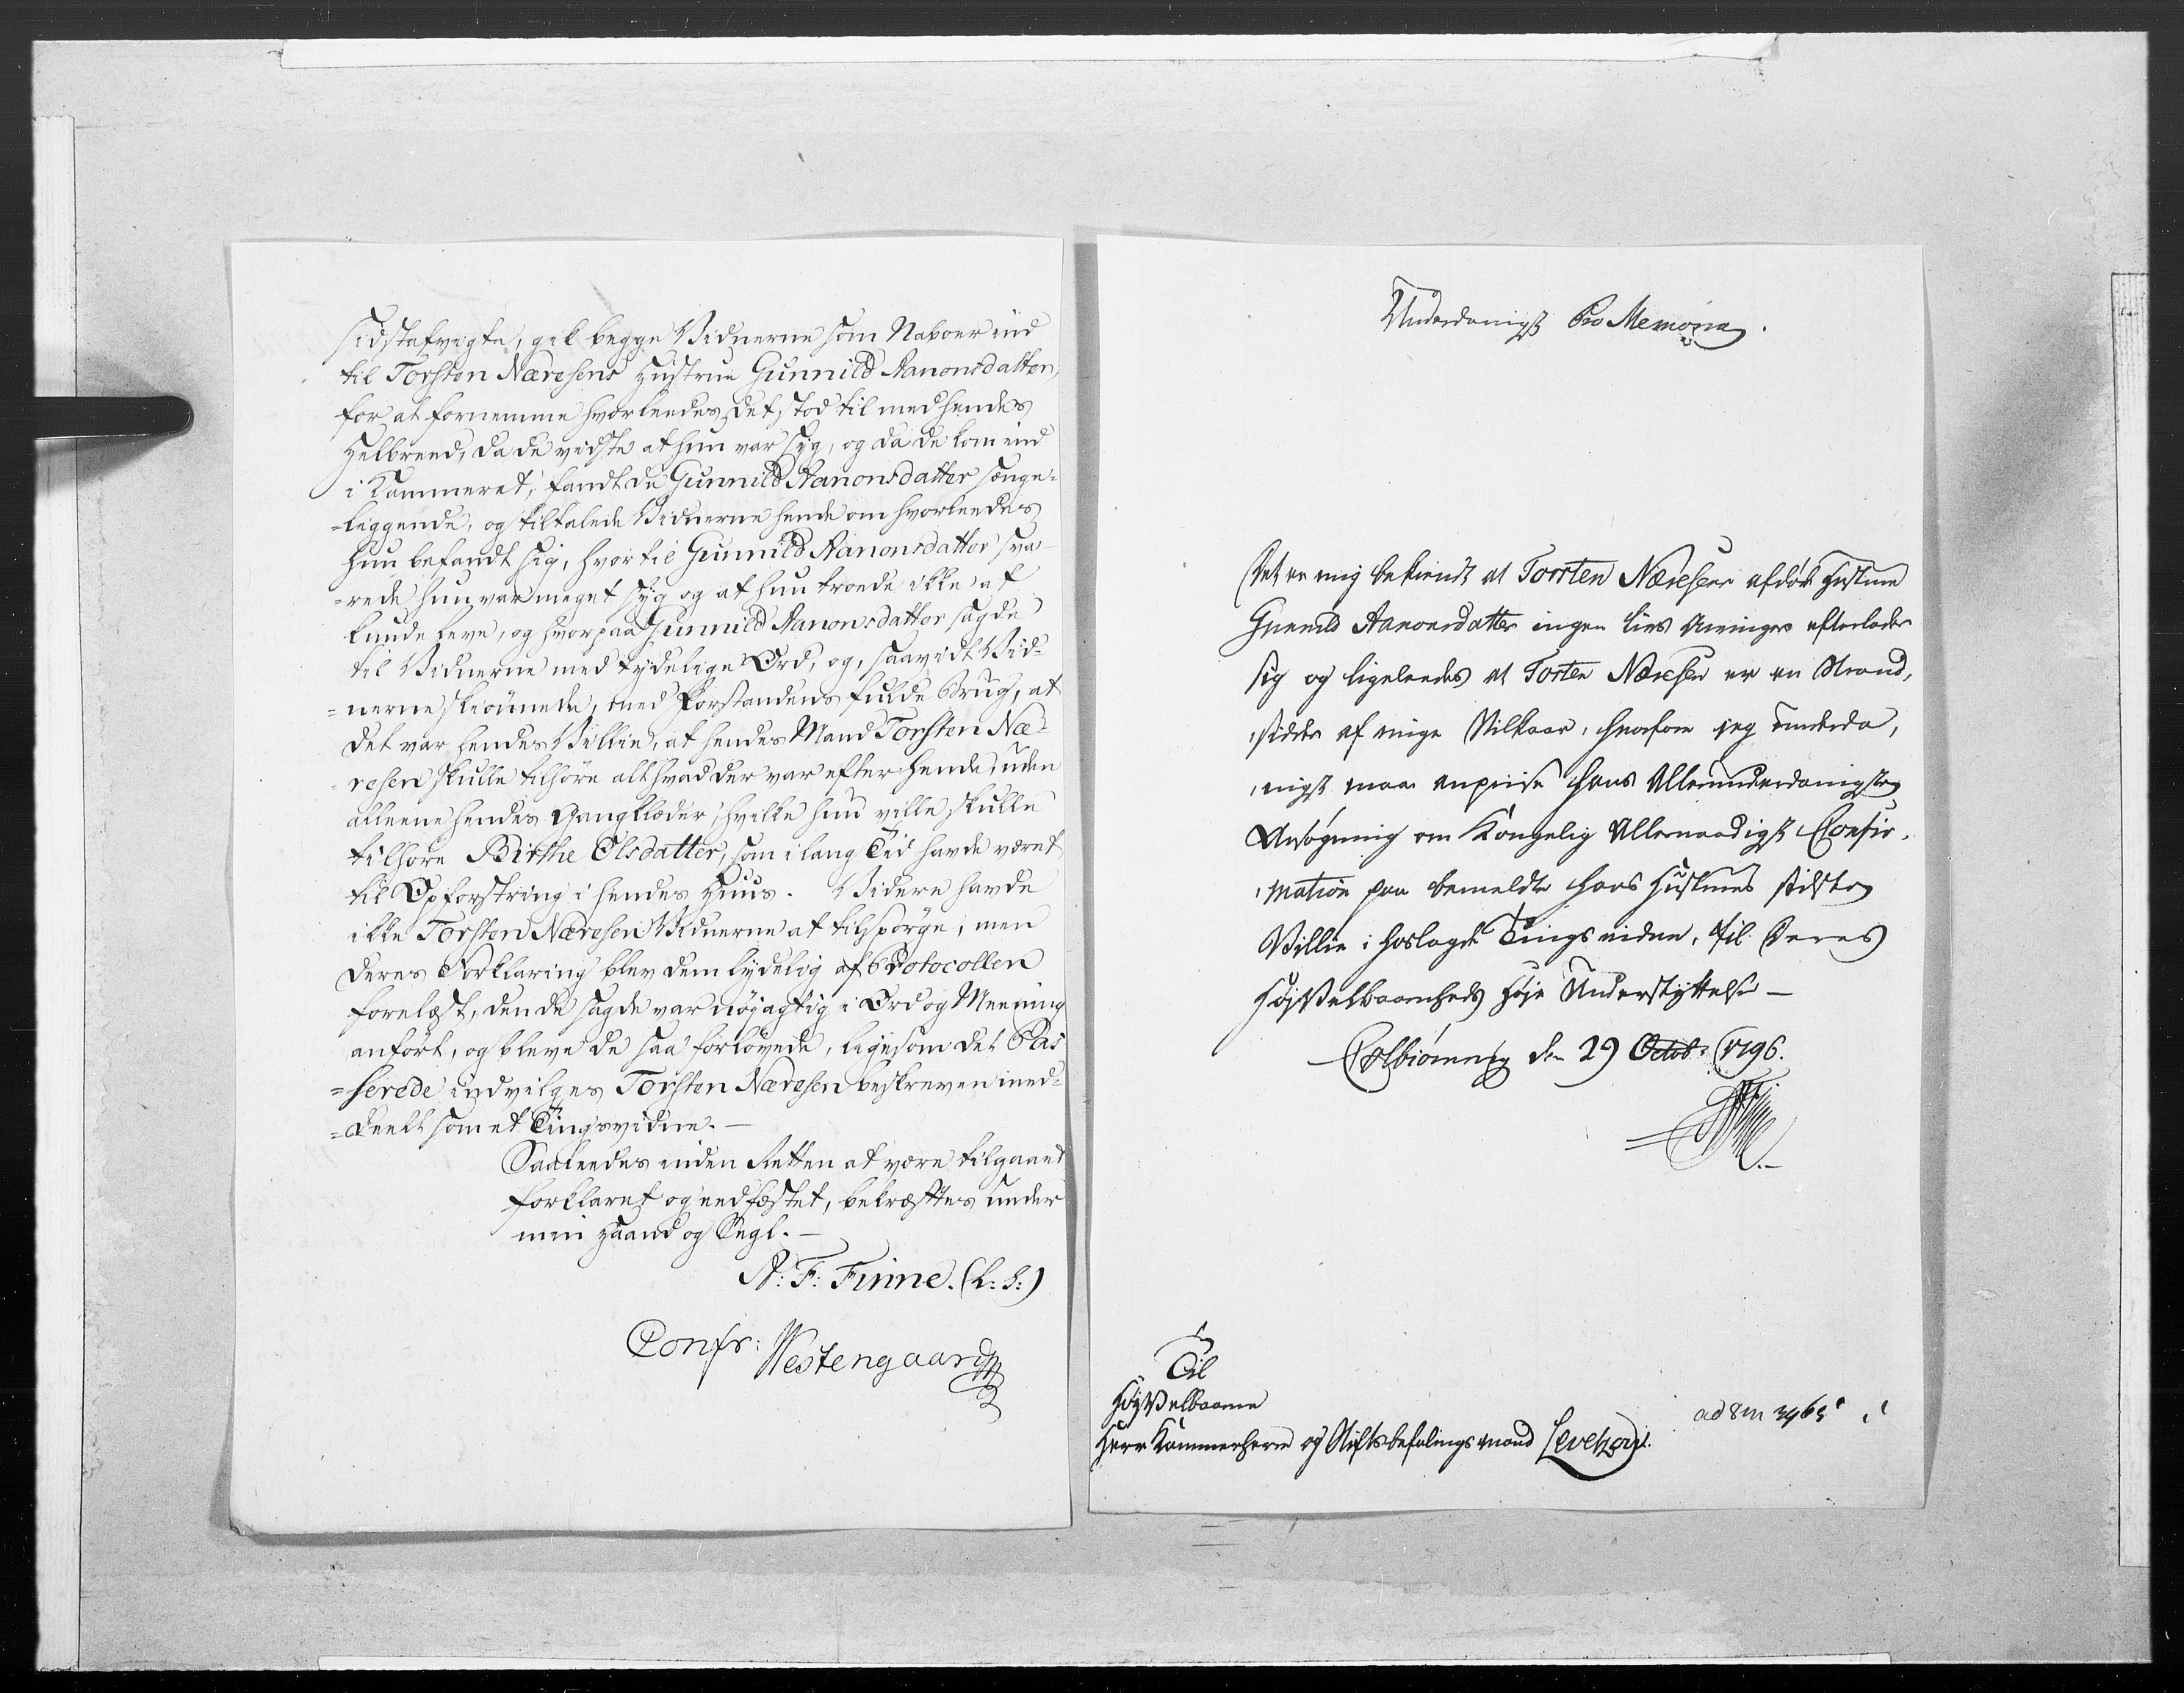 sidstafvigte, gik begge Vidnerne som Naboer ind
til Torsten Næresens Hustrue Gunnild Aanonsdatter,
for at fornemme hvorleedes det stod til med hendes
Helbreed, da de vidste at hun var syg, og da de kom ind
i Kammeret, fandt de Gunnild Aanonsdatter senge-
=liggende, og tiltalede Vidnerne hende om hvorleedes
hun befandt sig, hvortil Gunnild Aanonsdatter sva-
=rede hun var meget syg og at hun troede ikke at
kunde leve, og hvorpaa Gunnild Aanonsdatter sagde
til Vidnerne med tydelige Ord, og, saavidt Vid-
=nerne skiönnede, med Forstandens fulde Brug, at
det var hendes Villie, at hendes Mand Torsten Næ-
resen skulle tilhöre alt hvad der var efter hende, uden
alleene hendes Gangklæder, hvilke hun ville skulle
tilhöre Birthe Olsdatter, som i lang Tid havde været
til Opfostring i hendes Huus. Videre havde
ikke Torsten Næresen Vidnerne at tilspörge, men
deres Forklaring blev dem lydelig af Protocollen
forelæst, den de sagde var nöjagtig i Ord og Meening
anfört, og bleve de saa forlövede, ligesom det Pas
=serede indvilges Torsten Næresen beskreven med-
=deelt som et Tingsvidne.—
Saaleedes inden Retten at være tilgaaet
forklaret og eedfæstet, bekræftes under
min Haand og Segl.—
A: F: Finne. (L: S:)
Confr: Westengaard
Underdanigst Pro Memoria.
Det er mig bekiendt at Torsten Næresens afdöde Hustrue
Gunnild Aanonsdatter ingen Livs Arvinger efterlader
sig og ligeleedes at Torsten Næresen er en Strand,
,sidder af ringe Vilkaar, hvorfore jeg underda,
,nigst maa anprise hans Allerunderdanigste
Ansögning om Kongelig Allernaadigst Confir,
,mation paa bemeldte hans Hustrues sidste
Villie i hoslagde Tingsvidne, til Deres
HöjVelbaarenheds Höje Understyttelse —
Colbiörnsvig den 29 Octob: 1796.
Til
HöjVelbaarne
Herr Kammerherre og Stiftsbefalingsmand Levetzow.
ad 8 m 3965